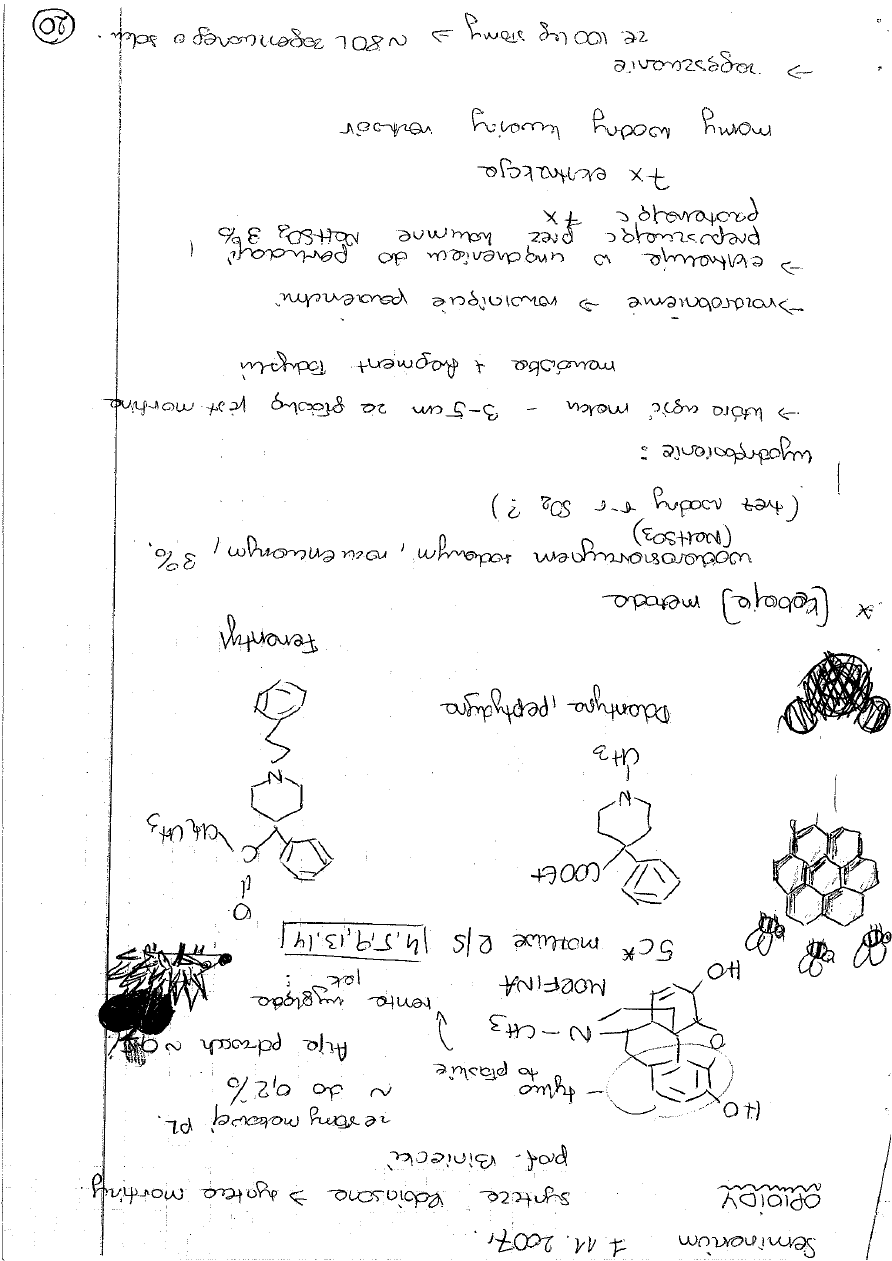 Seminarium 7.11.2007r.
OPIOIDY synteza Robinsona → synteza morfiny
prof. Biniecki
ze słomy makowej PL.
~ do 0,2%
Azja pd zasch ~
HO
tylko to płaskie
O
N-CH3
HO
MORFINA
renta wygląda jak
5C* możliwe R/S 4,5,9,13,14
COOEt
N
CH3
Dolantyna, petydyna
O
C
CH2CH3
N
Fenantyl
* [Kabaje] metoda
wodorosiarczynem sodowym, rozcieńczonym, 3%,
(NaHSO3)
(też wodny r-r SO2 ?)
wyodrębnianie :
→ która część maku - 3-5 cm za główką jest morfina
makówka + fragment łodyżki
→ rozdrobnienie → rozwinięcie powierzchni
→ ekstrakcja w urządzeniu do perkolacji
przepuszczając przez kolumnę NaHSO3 3%
powtarzając 7x
7x ekstrakcja
mamy wodny kwaśny roztwór
→ zagęszczanie
ze 100 kg słomy → ~80L zagęszczonego soku.
20